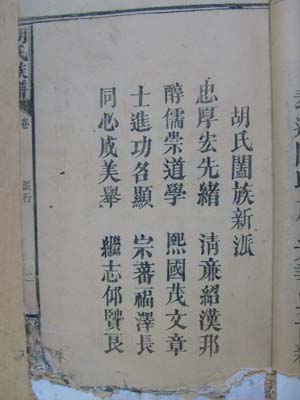 胡氏闔族新派
忠厚宏先緒 清亷紹漢邦
醇儒崇道學 熙國茂文章
士進功名顯 宗蕃福澤長
同心成美舉 繼志仰賢良
胡氏族譜 卷 派行 二